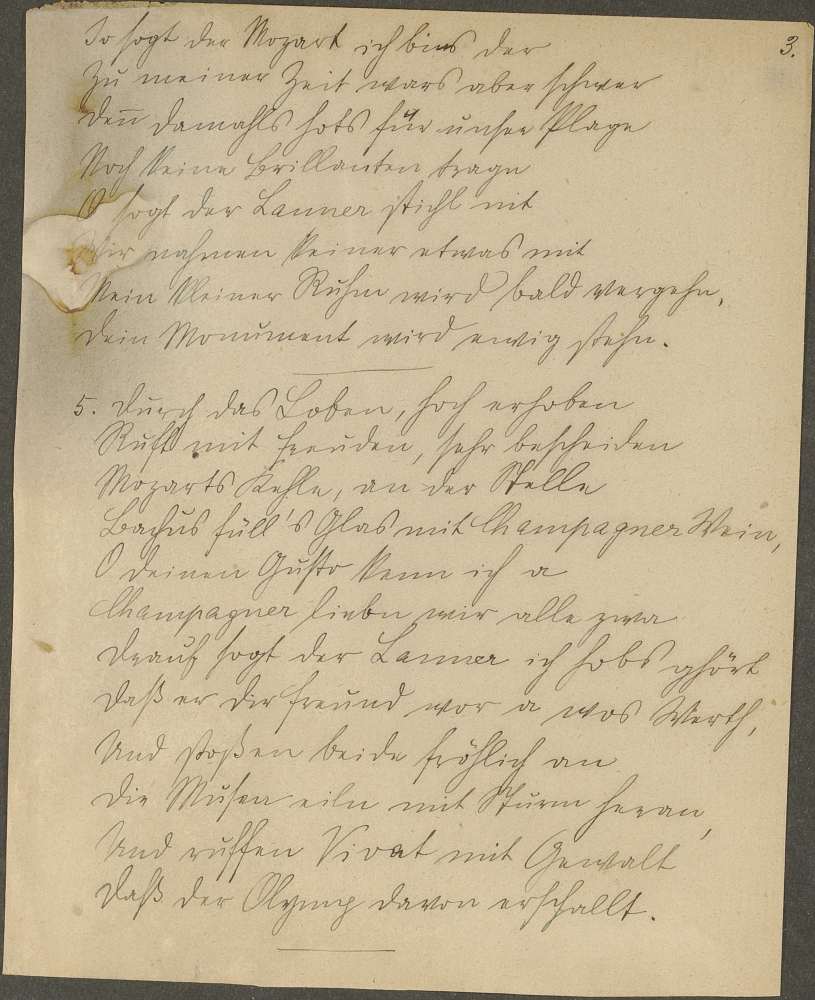 3.
Jo sogt der Mozart ich bins der
Zu meiner Zeit wars aber schwer
Denn damahls hots für unsre Plage
Noch keine Brillanten trage
O sogt der Lanner stichl nit
Wir nahmen keiner etwas mit
Mein kleiner Ruhm wird bald vergehn,
Dein Monument wird ewig stehn.
5. Durch das Loben, hoch erhoben
Ruft mit Freuden, sehr bescheiden
Mozarts Kehle, an der Stelle
Bachus füll's Glas mit Champagner Wein,
O deinen Gusto kenn ich a
Champagner liebn wir alle zwa
Drauf sogt der Lanner ich hobs ghört
Daß er dir Freund wor a wos Werth,
Und stoßen beide fröhlich an
Die Musen eiln mit Sturm heran,
Und ruffen Vivat mit Gewalt
Daß der Olymp davon erschallt.